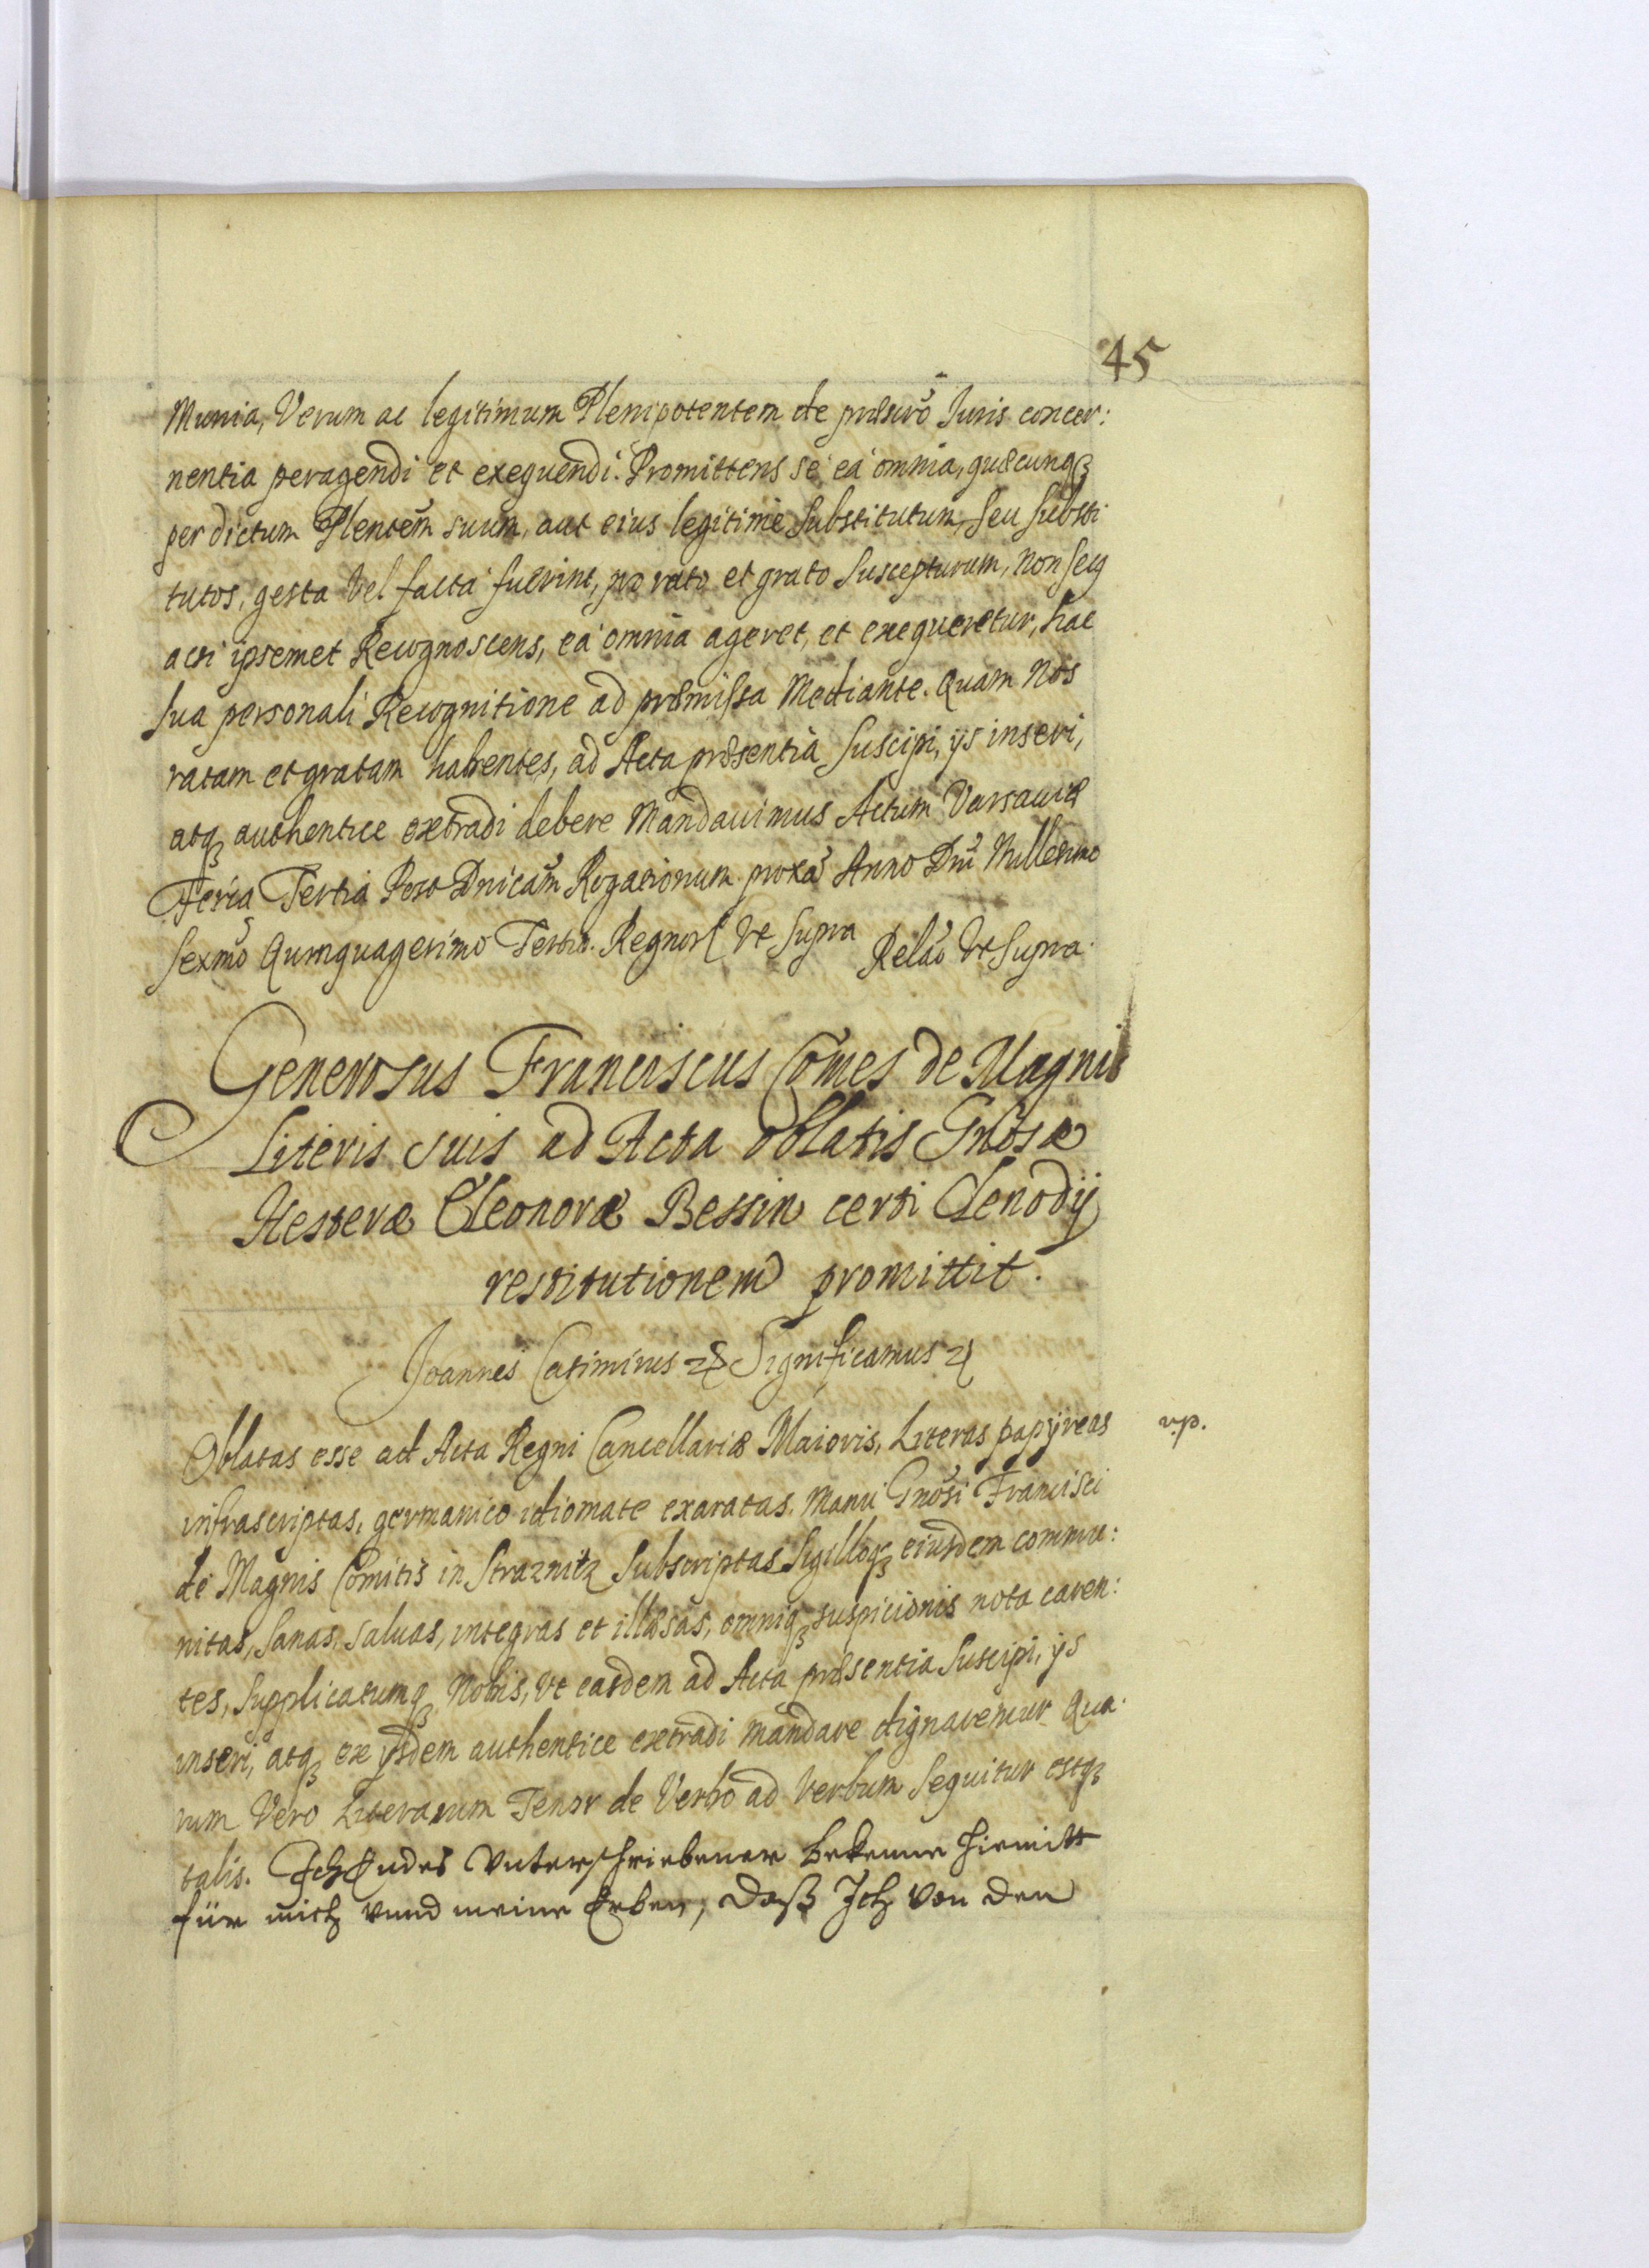 45
Munia, Verum ac legitimum Plenipotentem de præscrō Iuris concer:
nentia peragendi et exequendi. Promittens se ea omnia, quæcunqꝫ
per dictum Plentem̃ suum, aut eius legitime Substitutum, seu Substi
tutos, gesta Vel facta fuerint, pro rato et grato Suscepturum, Non Secꝫ
acsi ipsemet Recognoscens, ea omnia ageret, et exequeretur, hac
sua personali Recognitione ad præmissa Mediante. Quam Nos
ratam et gratam habentes, ad Acta præsentia Suscipi, ijs inseri,
atqꝫ authentice extradi debere Mandauimus Actum Varsauiæ
Feria Tertia Post Dnicam̃ Rogationum proxa Anno Dni Millesimo
Sexmo Quinquagesimo Tertio. Regnorꝭ Vt Supra Relaō Vt Supra.
Generosus Franciscus Cōmes de Magnis
Literis suis ad Acta oblatis Gnosæ
Hesteræ Eleonoræ Bessin certi Clenodij
restitutionem promittit.
Joannes Casimirus ꝛꝭ Significamus ꝛꝭ
Oblatas esse ad Acta Regni Cancellariæ Maioris, Literas papÿreas
v.p.
infrascriptas, germanico idiomate exaratas, Manu Gnosi Francisci
de Magnis Comitis in Straznitz Subscriptas Sigilloqꝫ eiusdem commu:
nitas, Sanas, saluas, integras et illæsas, omniqꝫ suspicionis nota caren:
tes, Supplicatumqꝫ Nobis, Vt easdem ad Acta præsentia Suscipi, ijs
inseri, atqꝫ ex ijsdem authentice extradi mandare dignaremur Qua:
rum Vero Literarum Tenor de Verbo ad Verbum Sequitur estqꝫ
talis. Ich Endes Vnterschriebener bekenne hiemitt
für mich vnnd meine Erben, daß Ich von den